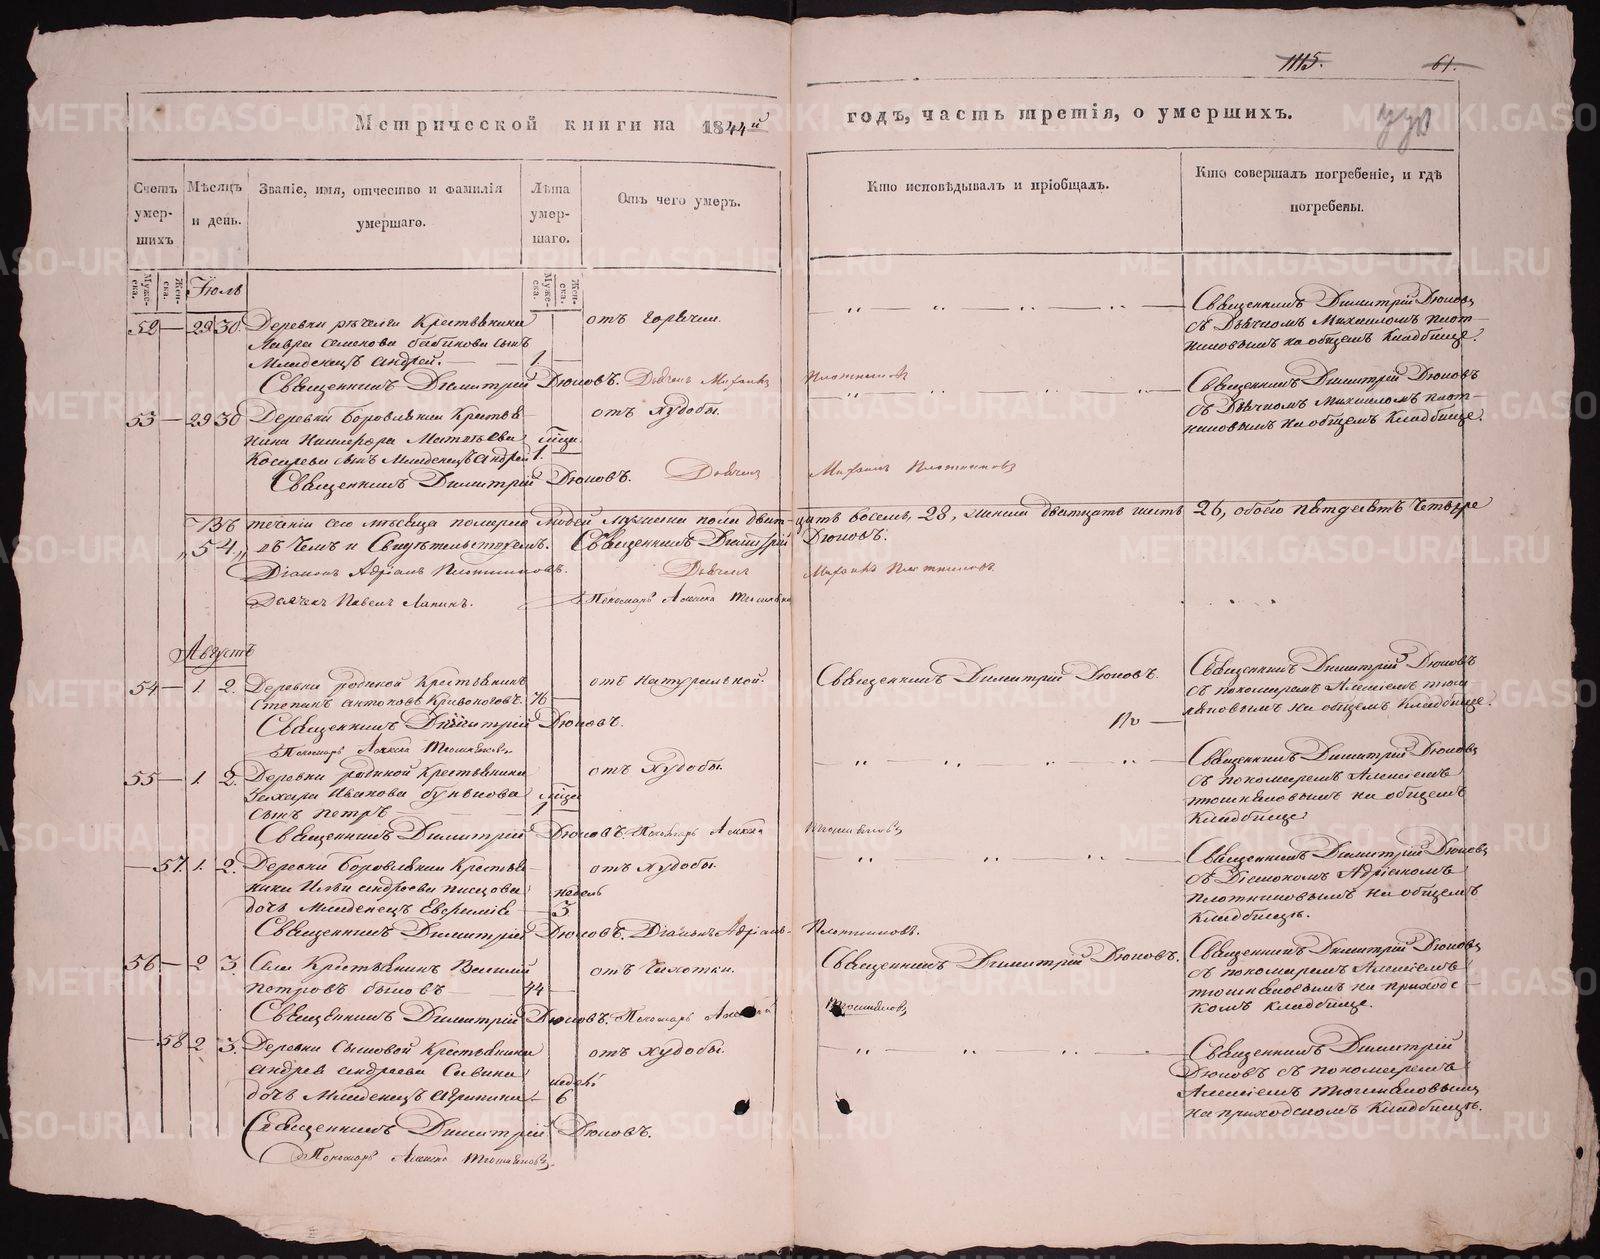 1115.
61.
770
Метрической книги на 1844й
годъ, часть третія, о умершихъ.
Счетъ умерших
Мѣсяцъ и день.
Званіе, имя, отчество и фамилія умершаго.
Лѣта умершаго.
Отъ чего умеръ.
Кто исповѣдывалъ и пріобщалъ.
Кто совершалъ погребеніе, и гдѣ погребены.
Мужеска.
Женска.
Мужеска.
Женска.
Іюль
52 — 29 30. Деревни Крестьянина отъ горячки. Священникъ Димитрій Дюковъ
Лавра Семенова Бабикова сынъ съ Дьячкомъ Михаиломъ Плот-
Младенецъ Андрей. — 1. — никовымъ на общемъ кладбище.
Священникъ Димитрій Дюковъ. Дьячекъ Михаилъ Плотниковъ
53 — 29 30 Деревни Боровлянки Крестья отъ худобы. Священникъ Димитрій Дюковъ
нина Никифора Матвѣева мѣся съ Дьячкомъ Михаиломъ Плот-
Косарева сынъ Младенецъ Андрей 1. никовымъ на общемъ кладбище.
Священникъ Димитрій Дюковъ. Дьячекъ Михаилъ Плотниковъ
Въ теченіи сего мѣсяца померло людей мужеска пола двадцать восемь, 28, женска двадцать шесть 26, обоего пятдесятъ четыре
„54„ въ чемъ и Свидѣтельствуемъ. Священникъ Димитрій Дюковъ.
Діаконъ Адріанъ Плотниковъ. Дьячекъ Михаилъ Плотниковъ
Дьячекъ Павелъ Лапинъ. Пономарь Алексѣй
Августъ
54 — 1. 2. Деревни Крестьянинъ отъ натуральной. Священникъ Димитрій Дюковъ. Священникъ Димитрій Дюковъ
Степанъ Антоновъ Кривоноговъ. 76 — съ пономаремъ Алексіемъ
Священникъ Димитрій Дюковъ. на общемъ кладбище.
Пономарь Алексѣй
55 — 1. 2. Деревни Крестьянина отъ худобы. Священникъ Димитрій Дюковъ
Захара Иванова мѣсяц съ пономаремъ Алексіемъ
сынъ Петръ 1 на общемъ
Священникъ Димитрій Дюковъ. Пономарь Алексѣй кладбище
— 57. 1. 2. Деревни Боровлянки Крестья отъ худобы. Священникъ Димитрій Дюковъ
нина Ильи Андреева недѣль съ Діакономъ Адріаномъ
дочь Младенецъ Евфимія — 3 Плотниковымъ на общемъ
Священникъ Димитрій Дюковъ. Діаконъ Адріанъ Плотниковъ. кладбищѣ.
56. — 2 3. Села Крестьянинъ Василій отъ чахотки. Священникъ Димитрій Дюковъ. Священникъ Димитрій Дюковъ
Петровъ Быковъ 44 — съ пономаремъ Алексіемъ
Священникъ Димитрій Дюковъ. Пономарь Алексѣй на приходс-
комъ кладбище.
— 58 2 3. Деревни Крестьянина отъ худобы. Священникъ Димитрій
Андрея Андреева Савина недѣль Дюковъ съ пономаремъ
дочь Младенецъ Агрипина — 6 Алексіемъ
Священникъ Димитрій Дюковъ. на приходскомъ кладбищѣ.
Пономарь Алексѣй
METRIKI.GASO-URAL.RU